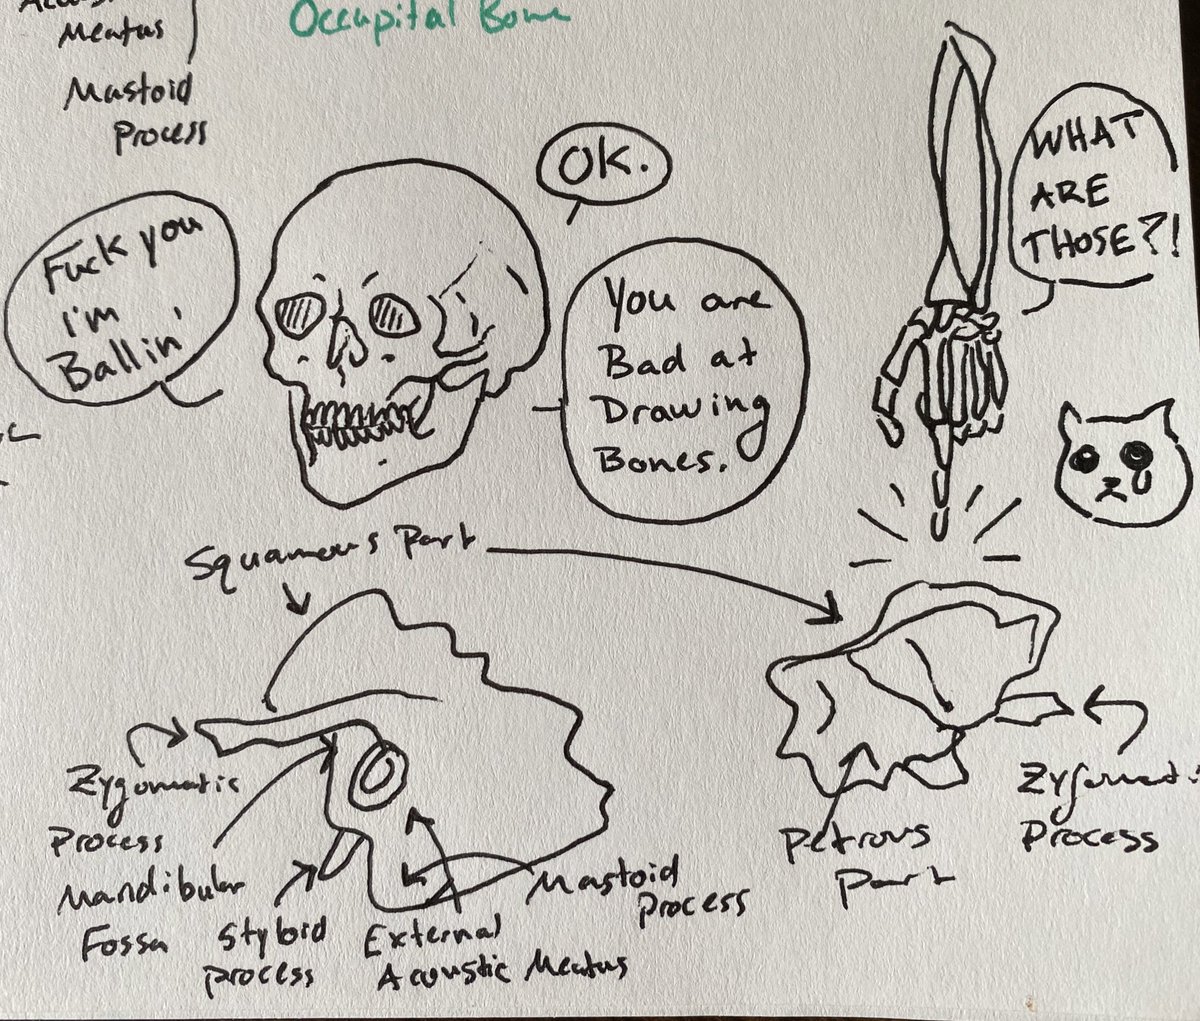 Meatus
Mastoid
Process
Occupital Bone
OK.
Fuck you
I'm
Ballin'
You are
Bad at
Drawing
Bones.
WHAT
ARE
THOSE?!
Squamous Part
Zygomatic
Process
Mandibular
Fossa
Styloid
Process
External
Acoustic Meatus
Mastoid
Process
Petrous
Part
Zygomati
Process